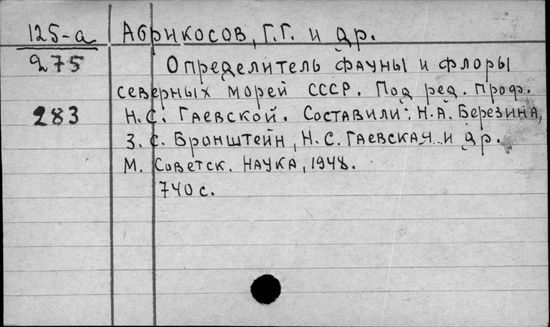 125-а Абрикосов, Г.Г. и др.
275 Определитель фауны и флоры
северных морей СССР. Под ред. проф.
283 Н.С. Гаевской. Составили: Н.А. Березина,
З.С. Бронштейн, Н.С. Гаевская и др.
М. Советск. наука, 1948.
740 с.